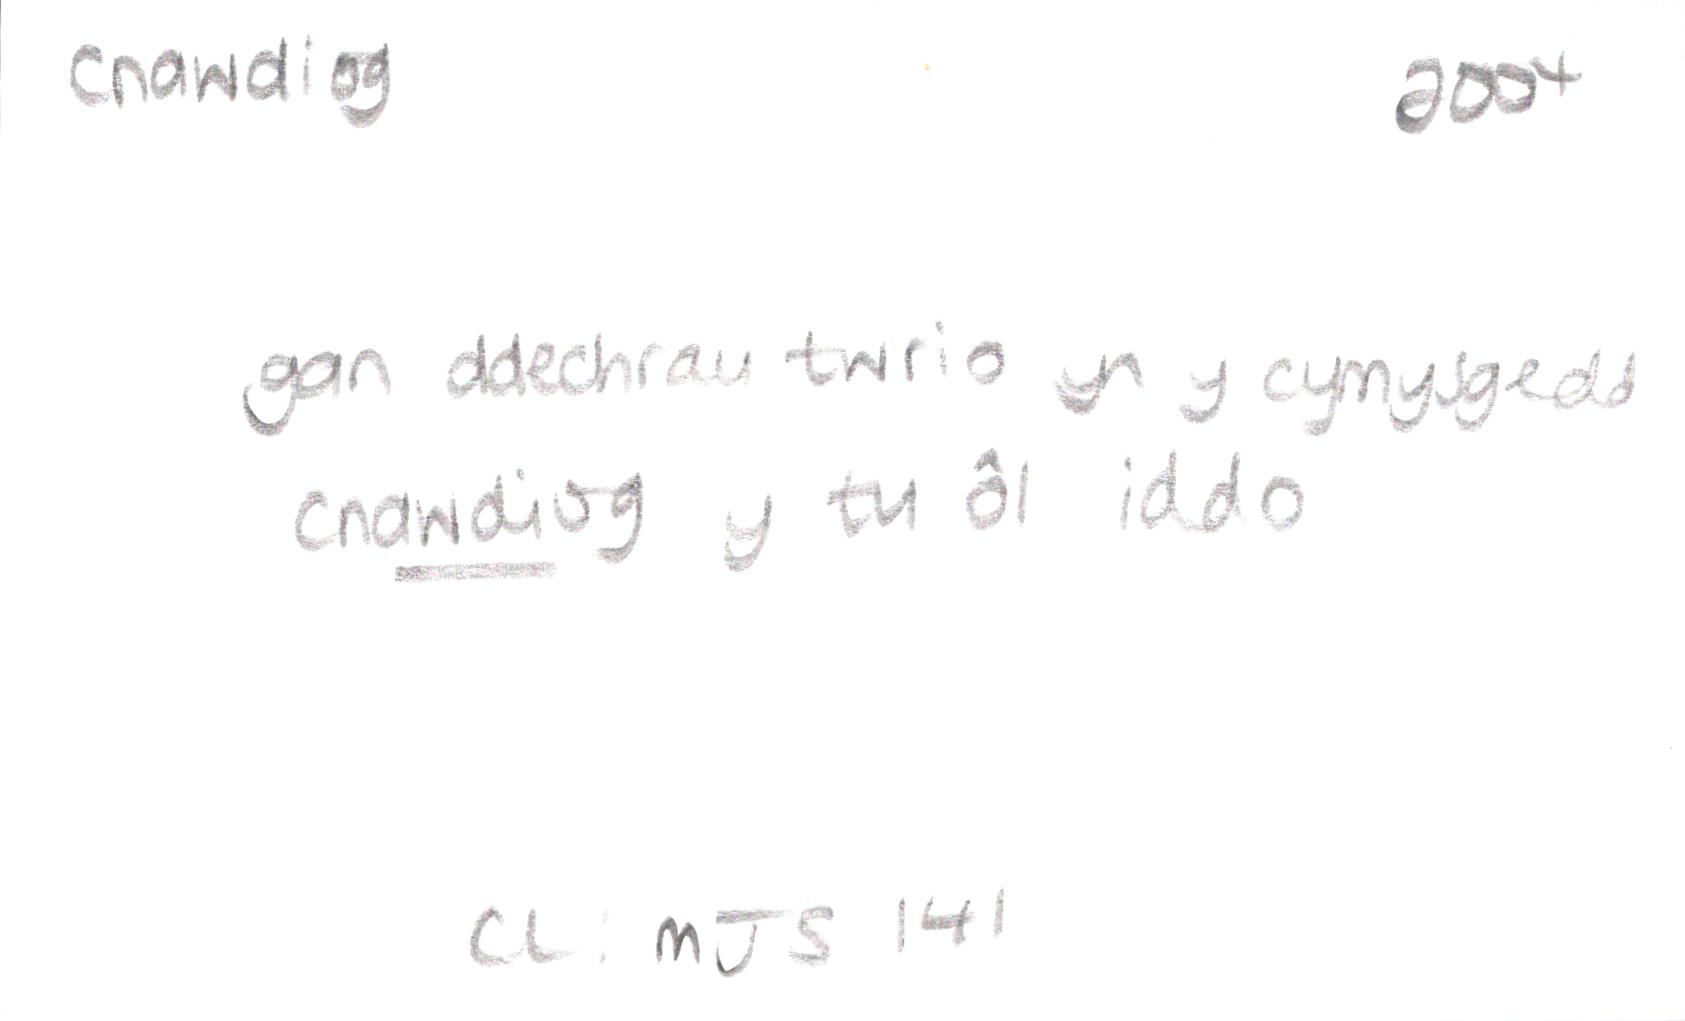 cnawdiog 2004
gan ddechrau twrio yn y cymysgedd
cnawdiog y tu ôl iddo
CL: MJS 141